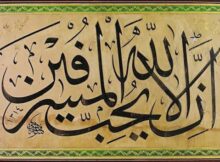 إن الله لا يحب المسرفين